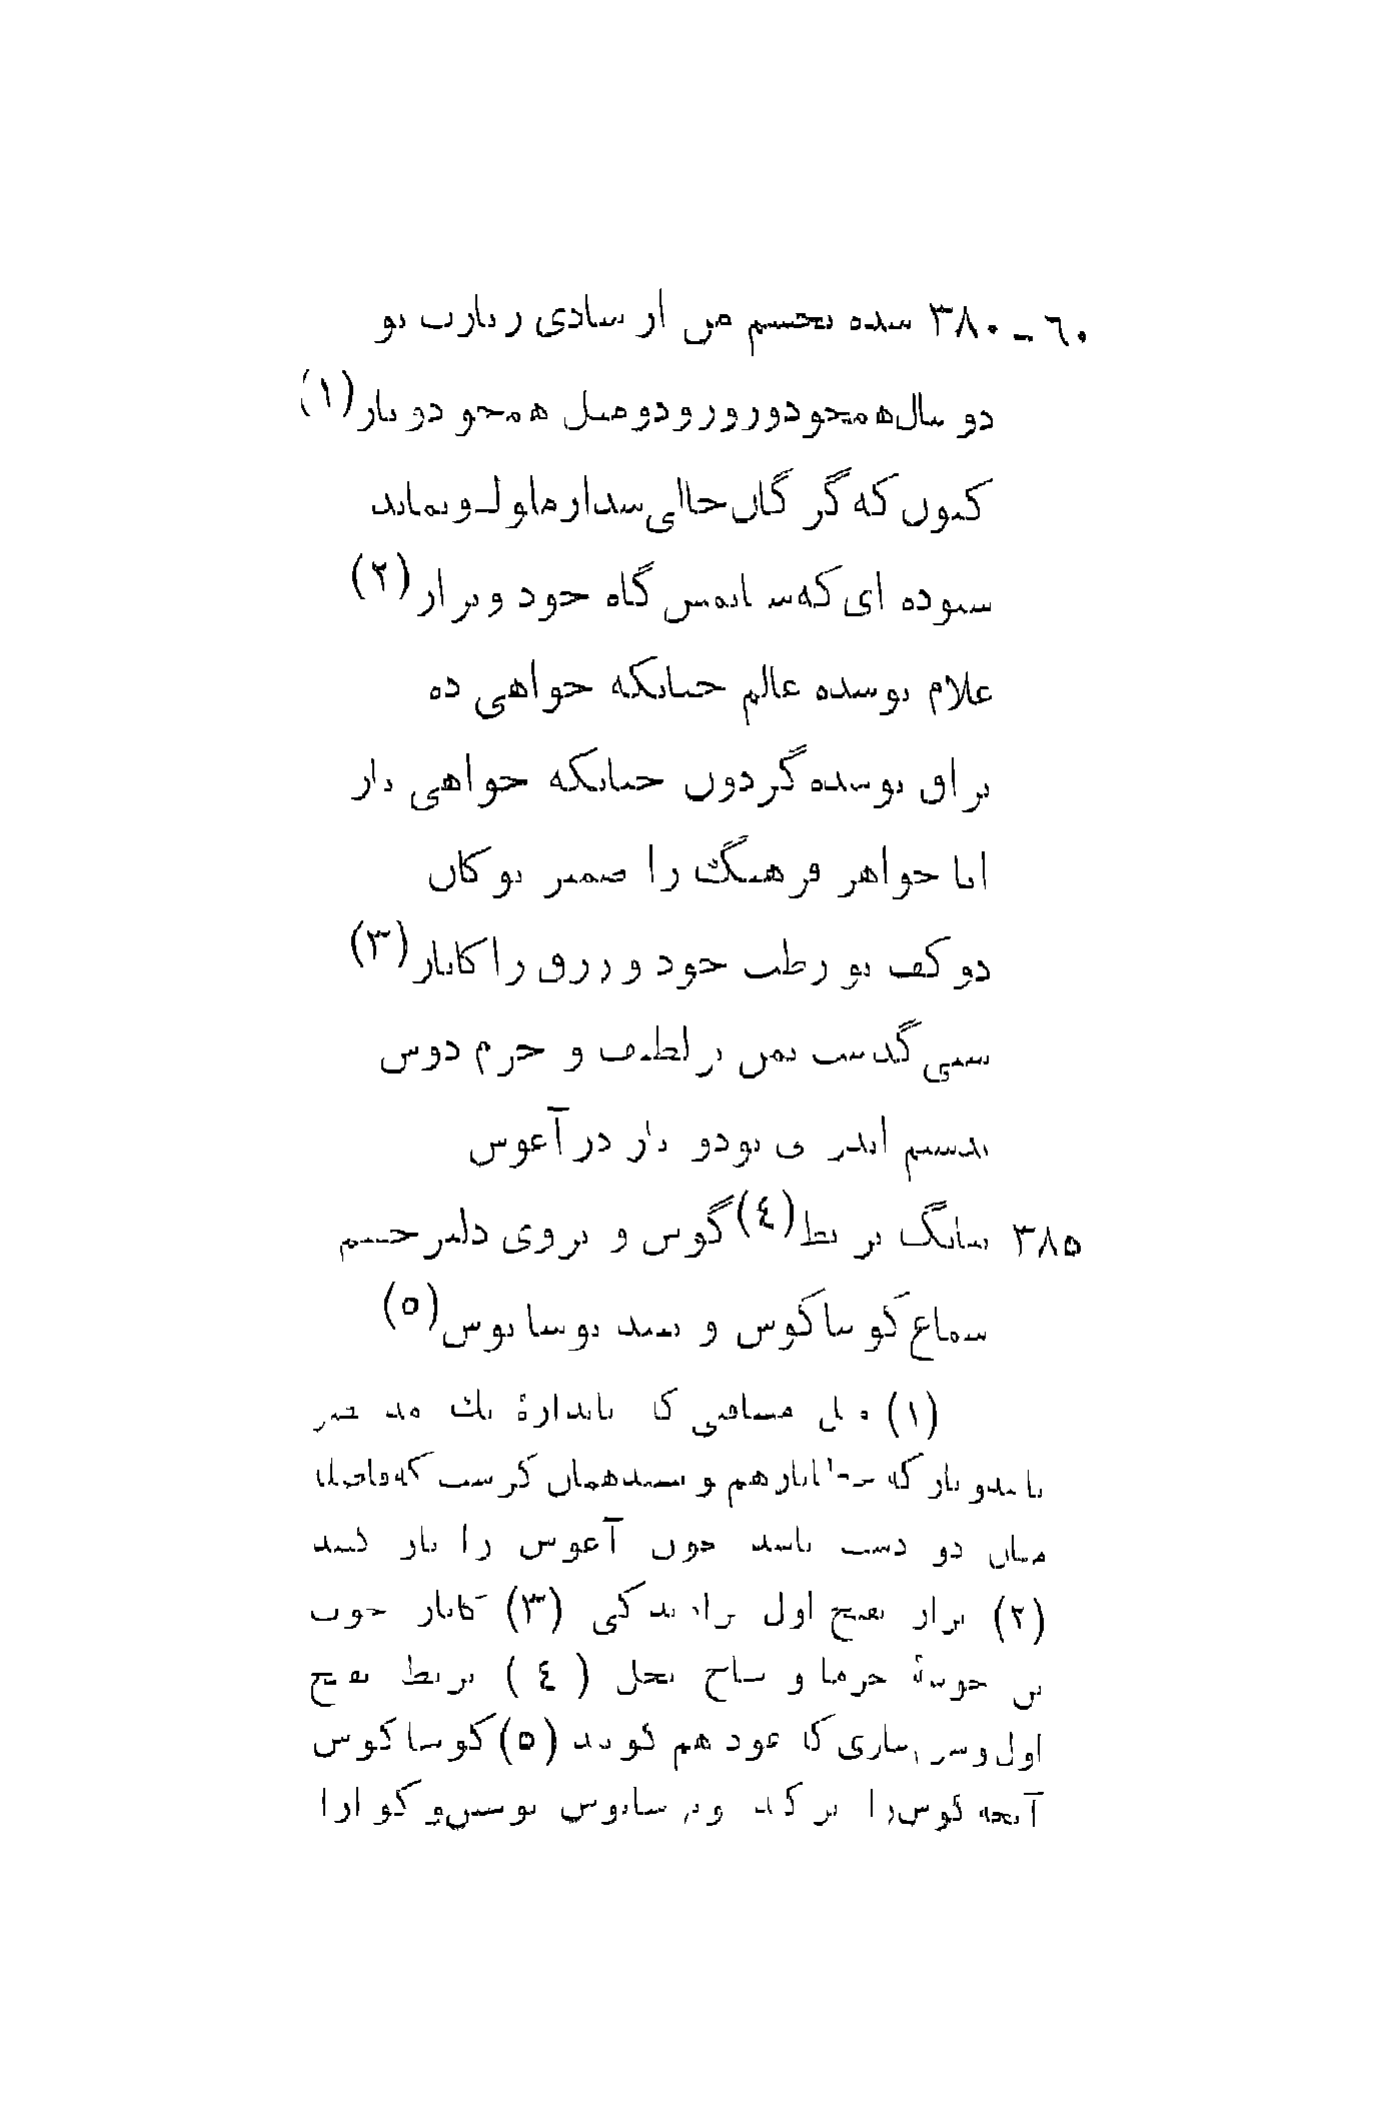 ٦٠ـ ٣٨٠ شده بچشم من از شادی زیارت تو
دو سال همچو دو روز و دو میل همچو دو باز (۱)
کنون که گر گان خالی
ستوده ای که گاه جود و براز (۲)
غلام تو شده عالم چنانکه خواهی ده
براق تو شده گردون چنانکه خواهی تاز
ایا جواهر فرهنگ را ضمیر تو کان
دو کف تو رطب جود و رزق را کاناز (۳)
شبی گذشت بمن بر لطیف و خرم دوش
ندیم بود و یار در آغوش
٣٨٥ ببانگ بربط (٤) گوش و بروی دلبر چشم
سماع گوشاگوش و نبید نوشانوش (٥)
(۱) میل مسافتی که باندازهٔ یك مد بصر
باشد و باز که هم نویسند همان کرست که فاصلهٔ
میان دو دست باشد چون آغوش را باز کنند
(۲) براز بفتح اول برازندگی (۳) کاناز چوب
بن خوشهٔ خرما و شاخ نخل (٤) بربط بفتح
اول و سازی که عود هم گویند (٥) گوشاگوش
آنچه گوش را پر کند و نوشانوش نوشین و گوارا